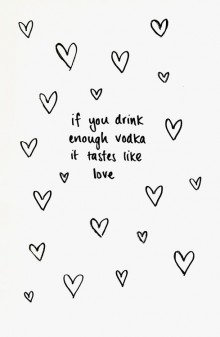 if you drink
enough vodka
it tastes like
love